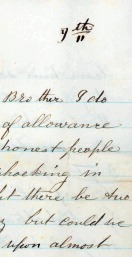 9 th/11
Brother I do
of allowance
honest people
shocking in
but there be two
but could we
upon almost